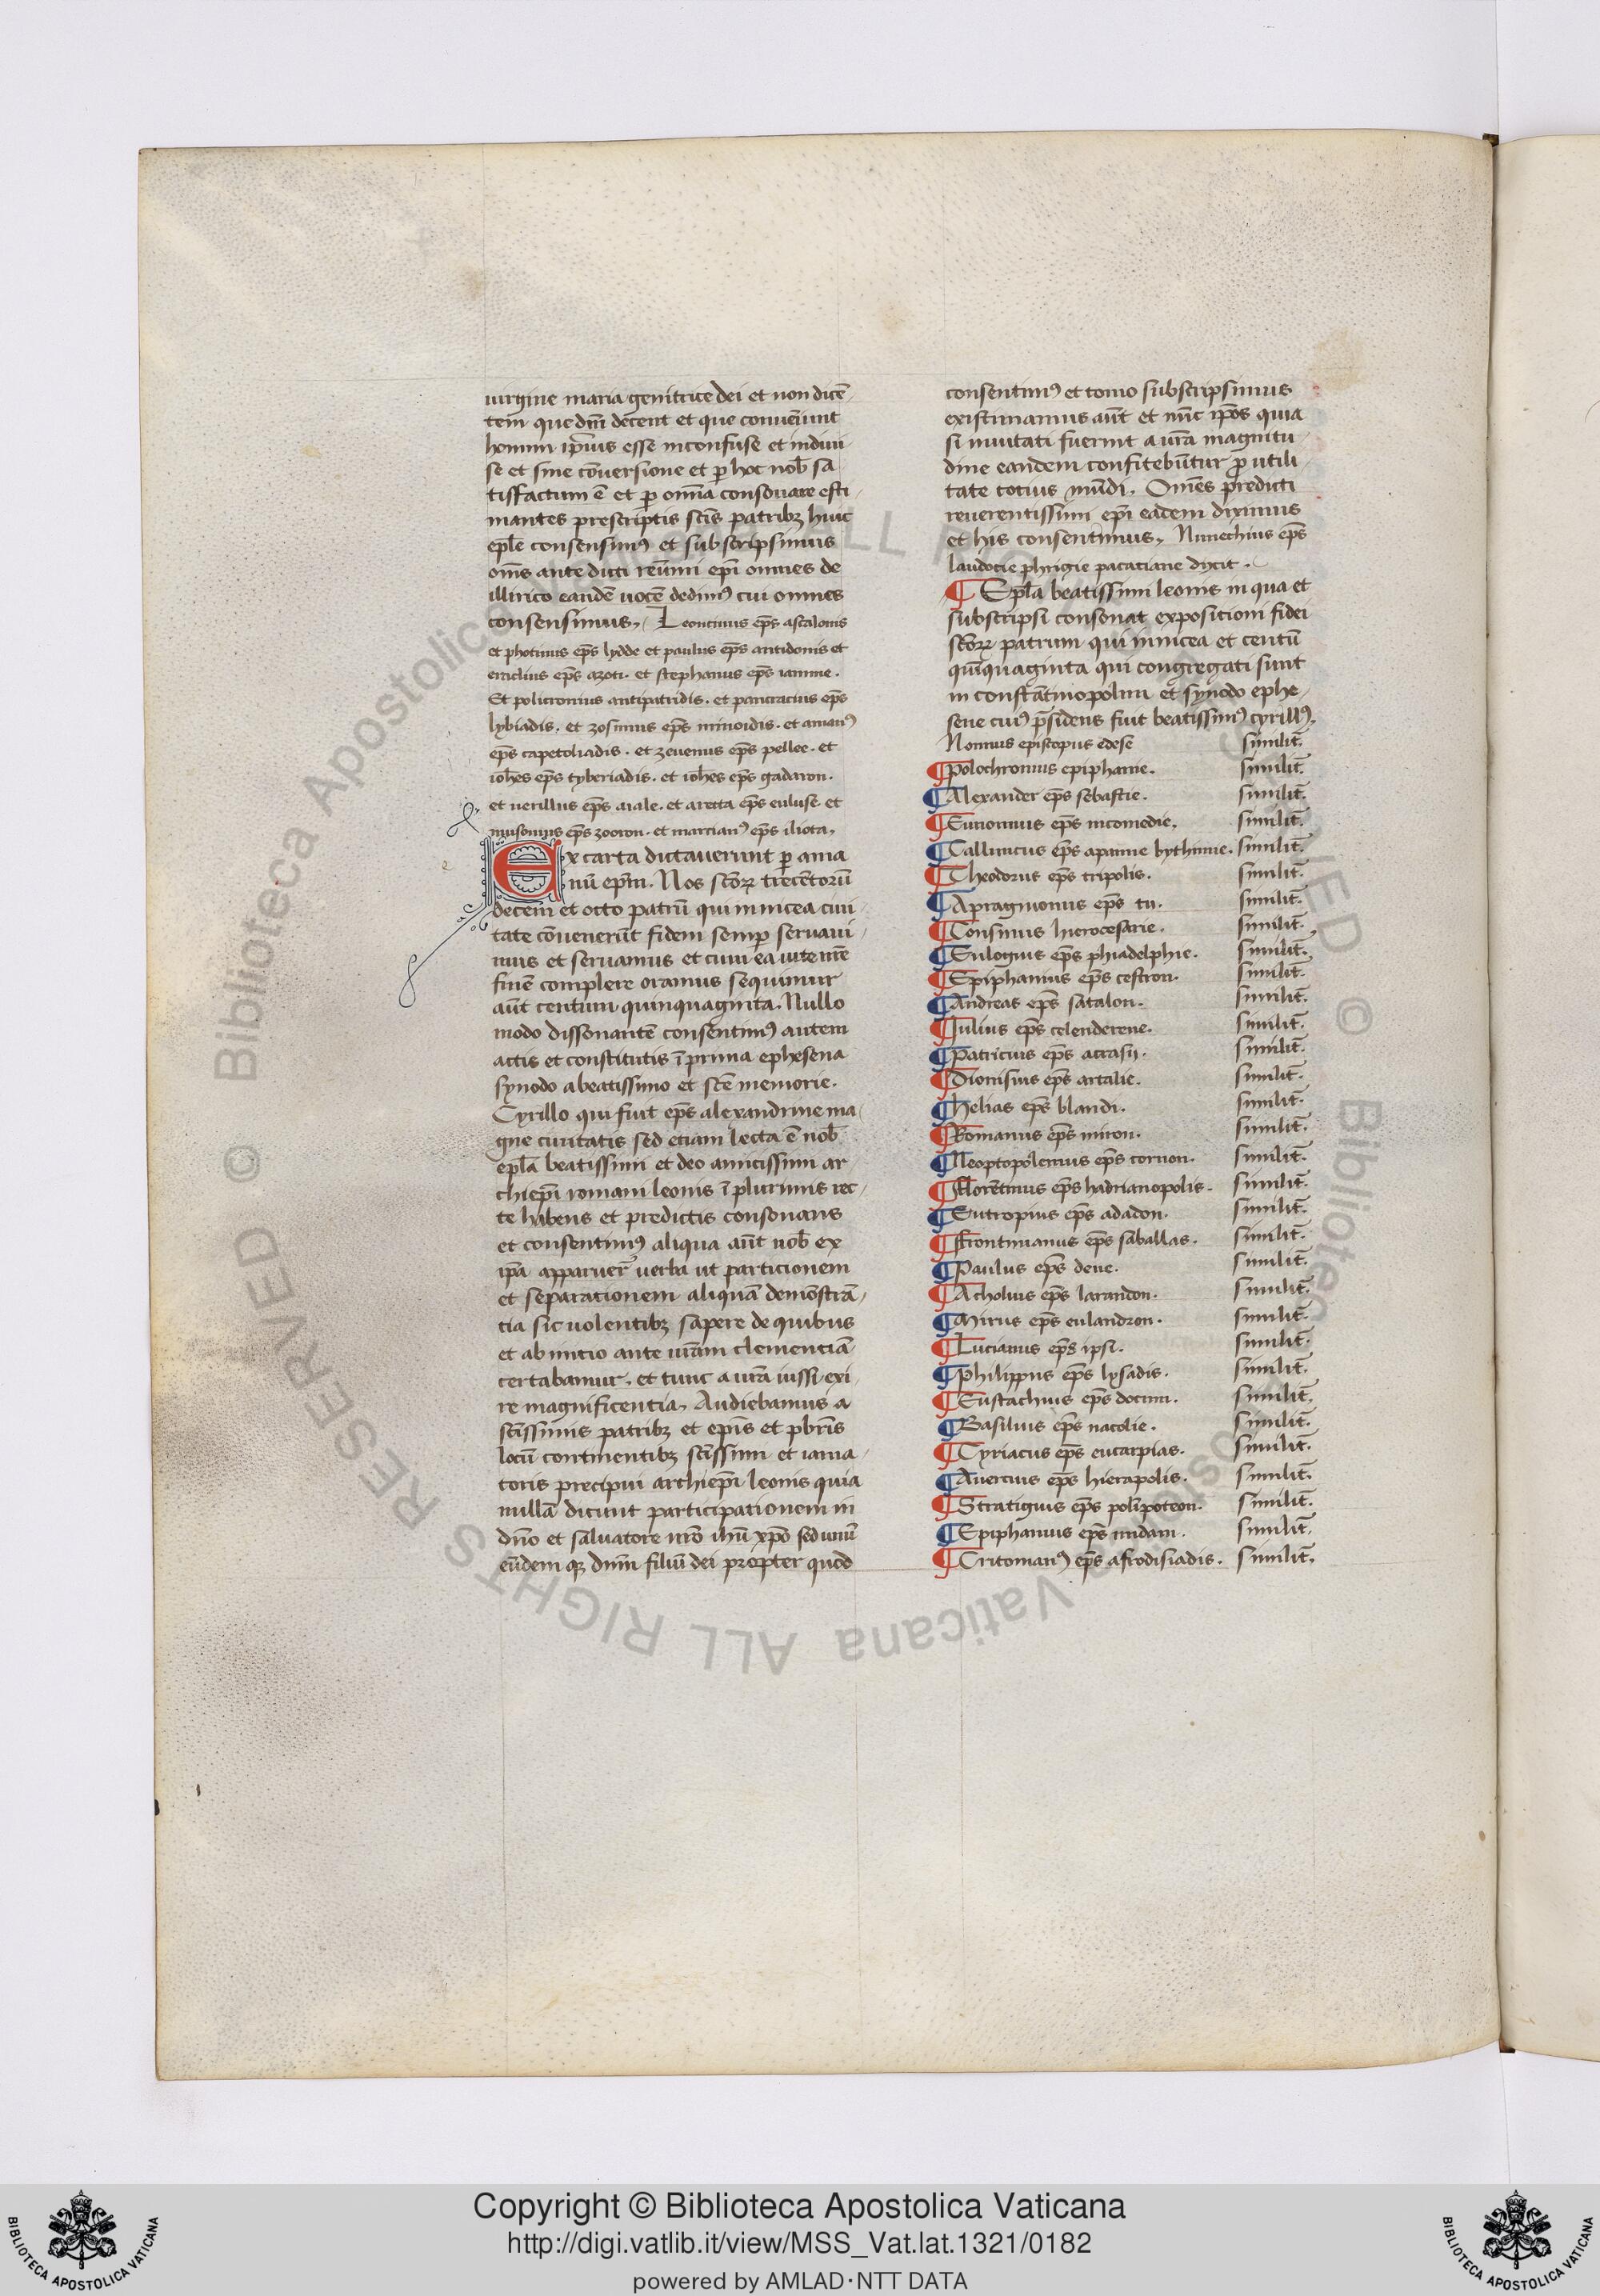 uirgine maria genitrice dei et non dicē
tem que dm̄ decent et que conueniunt
homini ip̄ius esse inconfuse et indiui
se et sine cōuersione et ꝑ hoc nob̄ sa
tisfactum ē et ꝑ om̄ia consonare esti
mantes prescriptis sc̄is patribꝫ huic
ep̄le consensimꝰ et subscripsimus
om̄s ante dicti reūmi ep̄i omnes de
illirico eandē uocē dedimꝰ cui omnes
consensimus, Leontinus ep̄s ascalonis
et photinus ep̄s lydde et paulus ep̄s antidonis et
eraclius ep̄s azoti. et stephanus ep̄s iamnie.
Et policronius antipatridis. et pancracius ep̄s
lybiadis. et zosimus ep̄s minoidis. et amanꝰ
ep̄s capetoliadis. et zeuenus ep̄s pellee. et
ioh̄es ep̄s tyberiadis. et ioh̄es ep̄s gadaron.
et uerillus ep̄s aiale. et aretta ep̄s euluse et
musonius ep̄s zooron. et marcianꝰ ep̄s iliota,
Ex carta dictauerunt ꝑ ania
nū ep̄m. Nos sc̄oꝝ trecētorū
decem et octo patrū qui in nicea ciui
tate cōuenerūt fidem semꝑ seruaui
mus et seruamus et cum ea uite nr̄e
finē complere oramus sequimur
aūt centum quinquaginta. Nullo
modo dissonantē consentimꝰ autem
actis et constitutis ī prima ephesena
synodo a beatissimo et sc̄e memorie.
Cyrillo qui fuit ep̄s alexandrine ma
gne ciuitatis sed etiam lecta ē nob̄
ep̄la beatissimi et deo amicissimi ar
chiep̄i romani leonis ī plurimis rec
te habens et predictis consonans
et consentimꝰ aliqua aūt nob̄ ex
ip̄a apparuer̄ uerba ut particionem
et separationem aliquā demōstrā
tia sic uolentibꝫ sapere de quibus
et ab initio ante ur̄am clementiā
certabamur. et tunc a ur̄a iussi exi
re magnificentia, Audiebamus a
sc̄issimis patribꝫ et ep̄is et pb̄ris
locū continentibꝫ sc̄issimi et iama
toris precipui archiep̄i leonis quia
nullā dicunt participationem in
dn̄o et saluatore nr̄o ihū xp̄o sed unū
eūdem qꝫ dnm̄ filiū dei propter quod
consentimꝰ et tomo subscripsimus
existimamus aūt et nūc ip̄os quia
si inuitati fuerint a ur̄a magnitu
dine eandem confitebūtur ꝓ utili
tate totius mūdi. Om̄es predicti
reuerentissimi ep̄i eadem diximus
et his consentimus, Nunechius ep̄s
laudocie phrigie pacatiane dixit.
¶ Ep̄la beatissimi leonis in qua et
subscripsi consonat expositioni fidei
sc̄oꝝ patrum qui in nicea et centū
quīquaginta qui congregati sunt
in constātinopolim et synodo ephe
sene cuiꝰ p̄sidens fuit beatissimꝰ cyrillꝰ,
Nonnus episcopus edese similit̄.
¶ Polochronius epiphanie. similit̄.
¶ Alexander ep̄s sebastie. similit̄.
¶ Eunomius ep̄s nicomedie, similit̄.
¶ Callinicus ep̄s apamie bythinie. similit̄.
¶ Theodorus ep̄s tripolis. similit̄.
¶ Apragmonius ep̄s tu. similit̄.
¶ Consinius hierocesarie. similit̄.
¶ Eulogius ep̄s phiadelphie. similit̄.
¶ Epiphanius ep̄s cestron. similit̄.
¶ Andreas ep̄s satalon. similit̄.
¶ Iulius ep̄s celenderene. similit̄.
¶ Patricius ep̄s acrasij. similit̄.
¶ Dionisius ep̄s artalie. similit̄.
¶ Helias ep̄s blandi. similit̄.
¶ Romanus ep̄s miron. similit̄.
¶ Neoptopolemus ep̄s cornon. similit̄.
¶ Florētinus ep̄s hadrianopolis. similit̄.
¶ Eutropius ep̄s adadon. similit̄.
¶ Frontinianus ep̄s saballas. similit̄.
¶ Paulus ep̄s deue. similit̄.
¶ Acholius ep̄s larandon. similit̄.
¶ Mirus ep̄s eulandron. similit̄.
¶ Lucianus ep̄s ipsi. similit̄.
¶ Philippus ep̄s lysadis. similit̄.
¶ Eustachius ep̄s docimi. similit̄.
¶ Basilius ep̄s nacolie. similit̄.
¶ Cyriacus ep̄s eucarpias. similit̄.
¶ Auercius ep̄s hierapolis. similit̄.
¶ Stratigius ep̄s polipoteon. similit̄.
¶ Epiphanius ep̄s midani. similit̄.
¶ Critomanꝰ ep̄s afrodisiadis. similit̄.
Copyright © Biblioteca Apostolica Vaticana
http://digi.vatlib.it/view/MSS_Vat.lat.1321/0182
powered by AMLAD·NTT DATA
BIBLIOTECA APOSTOLICA VATICANA
BIBLIOTECA APOSTOLICA VATICANA